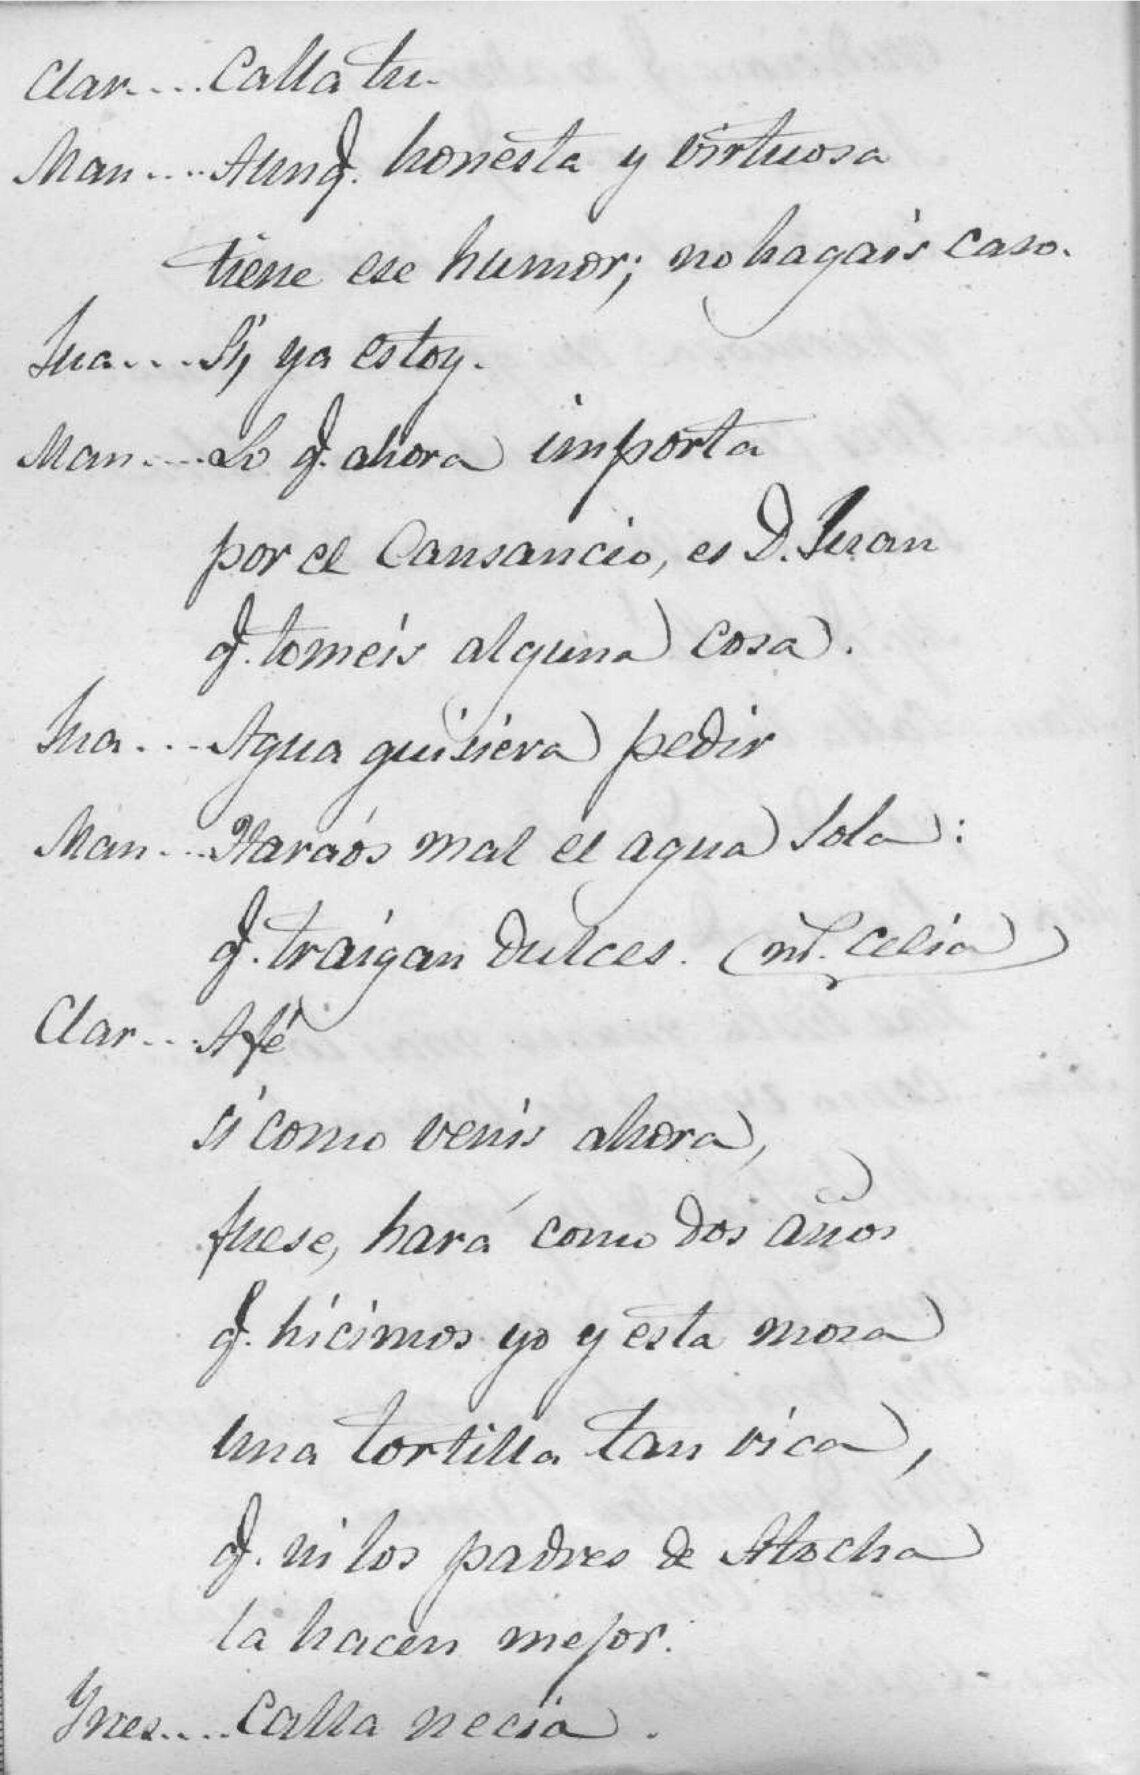 Clar.... Calla tu.
Man.... Aunq. honesta y virtuosa
tiene ese humor; no hagais caso.
Jua... Si, ya estoy.
Man.... Lo q. ahora importa
por el Cansancio, es D. Juan
q. tomeis alguna cosa.
Jua... Agua quisiera pedir
Man... Haraos mal el agua sola:
q. traigan dulces. (    Celia)
Clar... A fé
si como venis ahora,
fuese, hará como dos años
q. hicimos yo y esta mosa
una tortilla tan rica,
q. ni los padres de Atocha
la hacen mejor.
Ynes.... Calla necia.